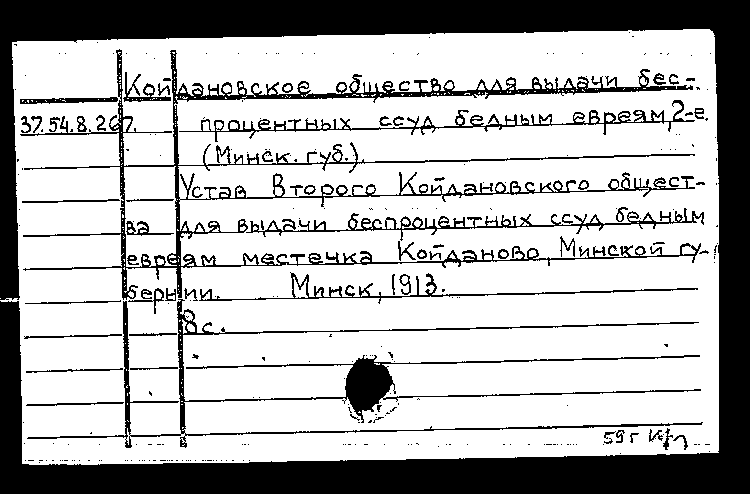 Койдановское общество для выдачи бес-
37.54.8.267. процентных ссуд бедным евреям, 2-е.
(Минск. губ.).
Устав Второго Койдановского общест-
ва для выдачи беспроцентных ссуд бедным
евреям местечка Койданово, Минской гу-
бернии. Минск, 1913.
8 с.
59г